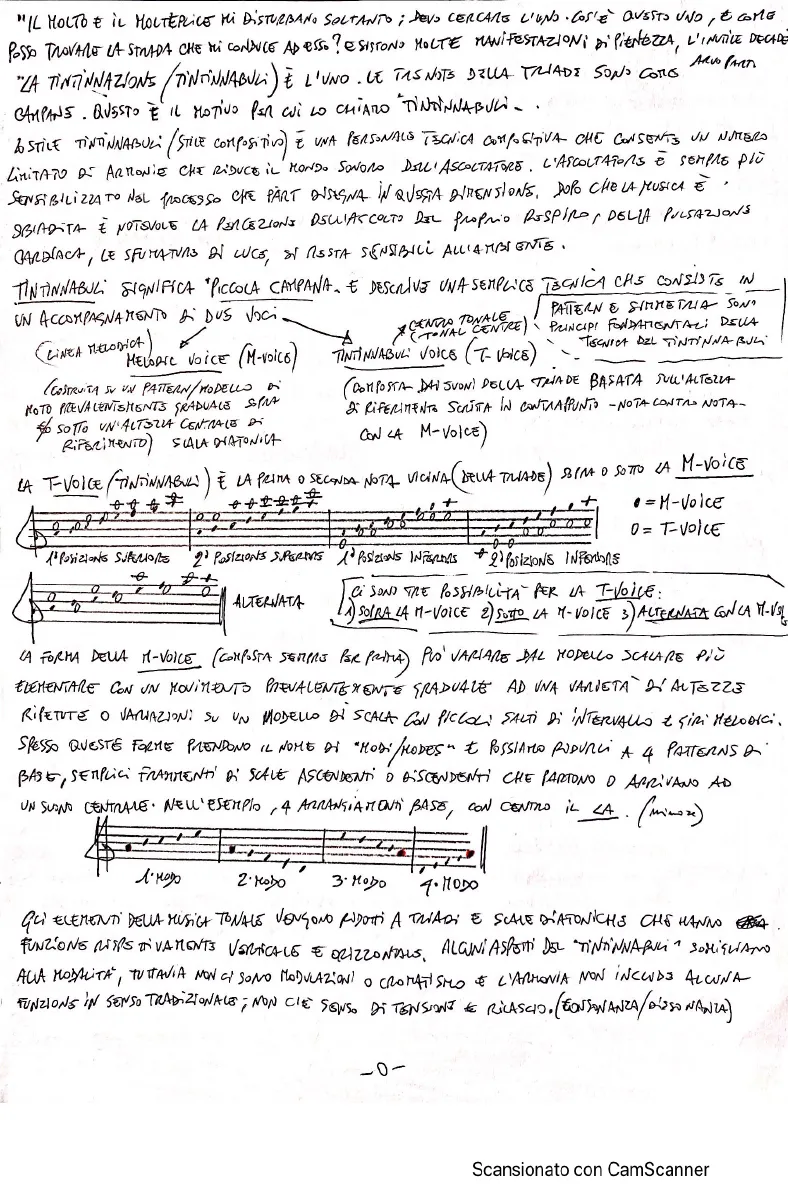 "IL MOLTO E IL MOLTEPLICE MI DISTURBANO SOLTANTO; DEVO CERCARE L'UNO. COS'È QUESTO UNO, E COME
POSSO TROVARE LA STRADA CHE MI CONDUCE AD ESSO? ESISTONO MOLTE MANIFESTAZIONI DI PIENEZZA, L'INUTILE DECADE
"LA TINTINNAZIONE (TINTINNABULI) È L'UNO. LE TRE NOTE DELLA TRIADE SONO COME
ARVO PÄRT
CAMPANE. QUESTO È IL MOTIVO PER CUI LO CHIAMO "TINTINNABULI".
LO STILE TINTINNABULI (STILE COMPOSITIVO) È UNA PERSONALE TECNICA COMPOSITIVA CHE CONSENTE UN NUMERO
LIMITATO DI ARMONIE CHE RIDUCE IL MONDO SONORO DELL'ASCOLTATORE. L'ASCOLTATORE È SEMPRE PIÙ
SENSIBILIZZATO NEL PROCESSO CHE PÄRT DISEGNA IN QUESTA DIMENSIONE. DOPO CHE LA MUSICA È
SBIADITA È NOTEVOLE LA PERCEZIONE DELL'ASCOLTO DEL PROPRIO RESPIRO, DELLA PULSAZIONE
CARDIACA, LE SFUMATURE DI LUCE, SI RESTA SENSIBILI ALL'AMBIENTE.
TINTINNABULI SIGNIFICA "PICCOLA CAMPANA" E DESCRIVE UNA SEMPLICE TECNICA CHE CONSISTE IN
UN ACCOMPAGNAMENTO DI DUE VOCI
CENTRO TONALE
(TONAL CENTRE)
PATTERN E SIMMETRIA SONO
PRINCIPI FONDAMENTALI DELLA
TECNICA DEL TINTINNABULI
(LINEA MELODICA)
MELODIC VOICE (M-VOICE)
TINTINNABULI VOICE (T-VOICE)
(COSTRUITA SU UN PATTERN/MODELLO DI
MOTO PREVALENTEMENTE GRADUALE SOPRA
O SOTTO UN'ALTEZZA CENTRALE DI
RIFERIMENTO) SCALA DIATONICA
(COMPOSTA DAI SUONI DELLA TRIADE BASATA SULL'ALTEZZA
DI RIFERIMENTO SCRITTA IN CONTRAPPUNTO -NOTA CONTRO NOTA-
CON LA M-VOICE)
LA T-VOICE (TINTINNABULI) È LA PRIMA O SECONDA NOTA VICINA (DELLA TRIADE) SOPRA O SOTTO LA M-VOICE
= M-VOICE
= T-VOICE
1ª POSIZIONE SUPERIORE 2ª POSIZIONE SUPERIORE 1ª POSIZIONE INFERIORE 2ª POSIZIONE INFERIORE
ALTERNATA
CI SONO TRE POSSIBILITÀ PER LA T-VOICE:
1) SOPRA LA M-VOICE 2) SOTTO LA M-VOICE 3) ALTERNATA CON LA M-VOICE
LA FORMA DELLA M-VOICE (COMPOSTA SEMPRE PER PRIMA) PUÒ VARIARE DAL MODELLO SCALARE PIÙ
ELEMENTARE CON UN MOVIMENTO PREVALENTEMENTE GRADUALE AD UNA VARIETÀ DI ALTEZZE
RIPETUTE O VARIAZIONI SU UN MODELLO DI SCALA CON PICCOLI SALTI DI INTERVALLO E GIRI MELODICI.
SPESSO QUESTE FORME PRENDONO IL NOME DI "MODI/MODES" E POSSIAMO RIDURLI A 4 PATTERNS DI
BASE, SEMPLICI FRAMMENTI DI SCALE ASCENDENTI O DISCENDENTI CHE PARTONO O ARRIVANO AD
UN SUONO CENTRALE. NELL'ESEMPIO, 4 ARRANGIAMENTI BASE, CON CENTRO IL LA. (minore)
1° MODO 2° MODO 3° MODO 4° MODO
GLI ELEMENTI DELLA MUSICA TONALE VENGONO RIDOTTI A TRIADI E SCALE DIATONICHE CHE HANNO
FUNZIONE RISPETTIVAMENTE VERTICALE E ORIZZONTALE. ALCUNI ASPETTI DEL "TINTINNABULI" SOMIGLIANO
ALLA MODALITÀ, TUTTAVIA NON CI SONO MODULAZIONI O CROMATISMO E L'ARMONIA NON INCLUDE ALCUNA
FUNZIONE IN SENSO TRADIZIONALE; NON C'È SENSO DI TENSIONE E RILASCIO. (CONSONANZA/DISSONANZA)
-0-
Scansionato con CamScanner